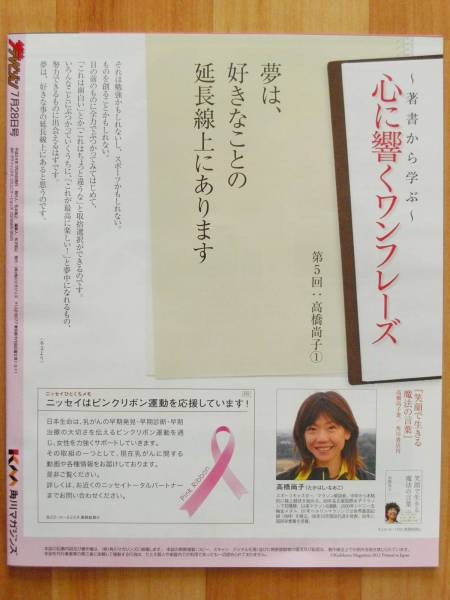 〜著書から学ぶ〜
心に響くワンフレーズ
第5回：高橋尚子①
夢は、
好きなことの
延長線上にあります
それは勉強かもしれないし、スポーツかもしれない。
ものを創ることかもしれない。
目の前のものに全力でぶつかってみてはじめて、
「これは面白い」とか「これはちょっと違うな」と取捨選択ができるのです。
いろんなことにぶつかっていくうちに、「これが最高に楽しい！」と夢中になれるもの、
努力できるものに出会えるはずです。
夢は、好きな事の延長線上にあると思うのです。
（本文より）
ニッセイひとくちメモ
ニッセイはピンクリボン運動を応援しています！
日本生命は、乳がんの早期発見・早期診断・早期
治療の大切さを伝えるピンクリボン運動を通
じ、女性を力強くサポートしていきます。
その取組の一つとして、現在乳がんに関する
動画や各種情報をお届けしております。
是非ご覧ください。
詳しくは、お近くのニッセイトータルパートナー
までお問い合わせください。
Pink Ribbon
高橋尚子（たかはし・なおこ）
『笑顔で生きる
魔法の言葉』
高橋尚子著／角川書店刊
笑顔で生きる
魔法の言葉
ザテレビジョン
7月28日号
角川マガジンズ
©Kadokawa Magazines 2012 Printed in Japan